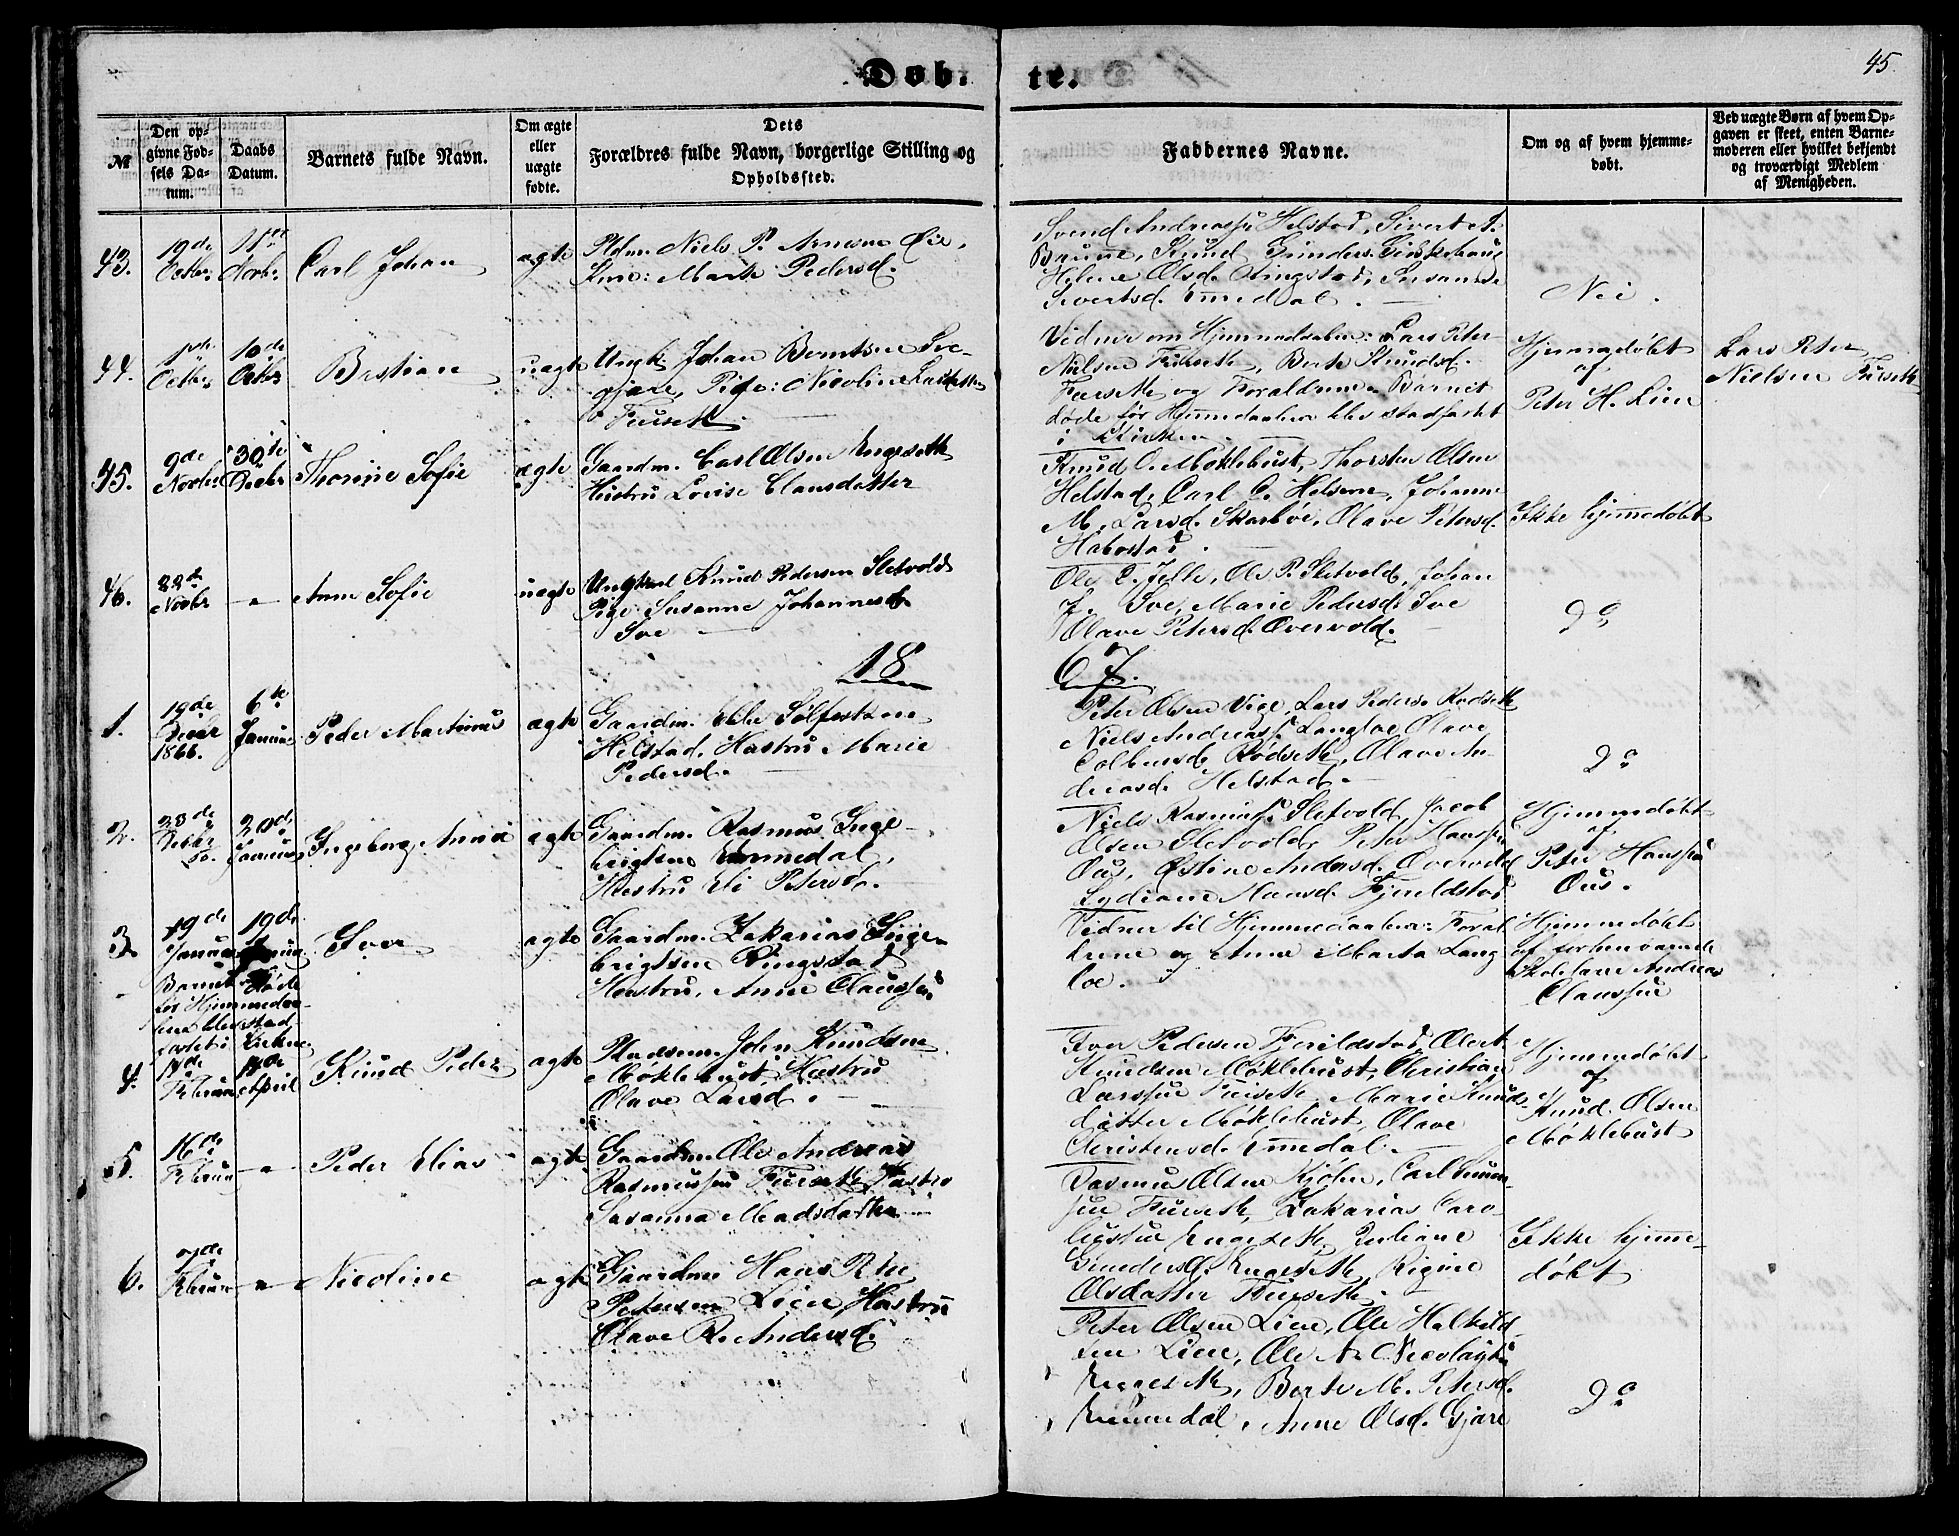 45.
Døb- te.
№
Den op-
givne Fød-
sels Da-
tum.
Daabs
Datum.
Barnets fulde Navn.
Om ægte
eller
uægte
fødte.
Dets
Forældres fulde Navn, borgerlige Stilling og
Opholdssted.
Faddernes Navne.
Om og af hvem hjemme-
døbt.
Ved uægte Børn af hvem Op-
gaven er skeet, enten Barne-
moderen eller hvilket bekjendt
og troværdigt Medlem
af Menigheden.
43.
19de
Octbr.
11te
Novbr.
Carl Johan
ægte
Pldm. Niels P. Arnesen
Kone: Marte Pedersd.
Svend Andreass. Helstad, Sivert A.
Brune, Knud Gunders.
Helene Olsd. Ringstad, Susanne
Sivertsd. Emedal.
Nei.
44.
Octbr
10de
Octbr
Bastian
uægte
Ungk. Johan Berntsen Sve-
gjære, Pige: Nicoline
Furseth
Vidner om Hjemmedaaben: Lars Peter
Nielsen Furseth, Berte Knudsd.
Furseth og Forældrene. Barnet
døde før Hjemmedaaben blev stadfæstet
i Kirken
Hjemmedøbt
af
Peter H. Lien
Lars Peter
Nielsen Furseth
45.
9de
Novbr.
30te
Decbr
Thorine Sofie
ægte
Gaardm. Carl Olsen Engeseth
Hustru Lovise Clausdatter
Knud O. Møklebust, Thorsten Olsen
Helstad, Carl C. Helsene, Johanne
M. Larsd. Skarbøe, Olave Petersd.
Habostad.
Ikke hjemmedøbt
46.
22de
Novbr
— " —
Anne Sofie
uægte
Ungkarl Knud Pedersen Sletvold
Pige Susanne Johannesd.
Sve
Ole C. Jelle, Ole P. Sletvold, Johan
J. Sve, Marie Pedersd. Sve
Olave Petersd. Overvold.
do
18 67.
1.
19de
Decbr
1866.
6te
Januar
Peder Martinus
ægte
Gaardm. Elle Sølfestsen
Helstad, Hustru Marie
Pedersd.
Peter Olsen Vige, Lars Peders. Rødseth
Niels Andreass. Langloe Olave
Colbensd. Rødseth, Olave An-
dreasd. Helstad.
do
2.
28de
Decbr
do.
20de
Januar
Ingeborg Anna
ægte
Gaardm. Rasmus Inge-
brigtsen Emmedal,
Hustru Eli Petersd.
Niels Rasmuss. Sletvold, Jacob
Olsen Sletvold, Peter Hanssen
Ous, Østine Andersd. Overvold
Lydiane Hansd. Fjeldstad
Hjemmedøbt
af
Peter Hanssen
Ous.
3.
19de
Januar
19de
Januar
Barnet døde
før Hjemmedaa-
ben blev stad-
fæstet i Kirken.
Iver
ægte
Gaardm. Zakarias Inge-
brigtsen Ringstad
Hustru, Anne
Vidner til Hjemmedaaben: Foræl-
drene og Anne Marta Lang
loe.
Hjemmedøbt
af forhenværende
Skolelærer Andreas
Claussen
4.
17de
Februar
14de
April
Knud Peder
ægte
Pladsm. John Knudsen
Møklebust, Hustru
Olave Larsd.
Iver Pedersen Fjeldstad, Olert
Knudsen Møklebust, Christian
Larssen Furseth, Marie Knuds-
datter Møklebust, Olave
Christensd. Emedal.
Hjemmedøbt
af
Knud Olsen
Møklebust
5.
16de
Februar
— " —
Peder Elias
ægte
Gaardm. Ole Andreas
Rasmussen Furseth, Hustru
Susanna Madsdatter
Rasmus Olsen Kjøhn, Carl
sen Furseth, Zakarias Caro-
liussen Engeseth Juliane
Gundersd. Engeseth, Rigine
Olsdatter Furseth.
Ikke hjemme-
døbt
6.
7de
Februar
— " —
Nicoline
ægte
Gaardm. Hans Peter
Petersen Lien, Hustru
Olave R. Andersd.
Peter Olsen Lien, Ole Halkild-
sen Lien, Ole A. Nicolays.
Engeseth, Berte M. Petersd.
Emmedal, Anne Olsd. Gjære
do